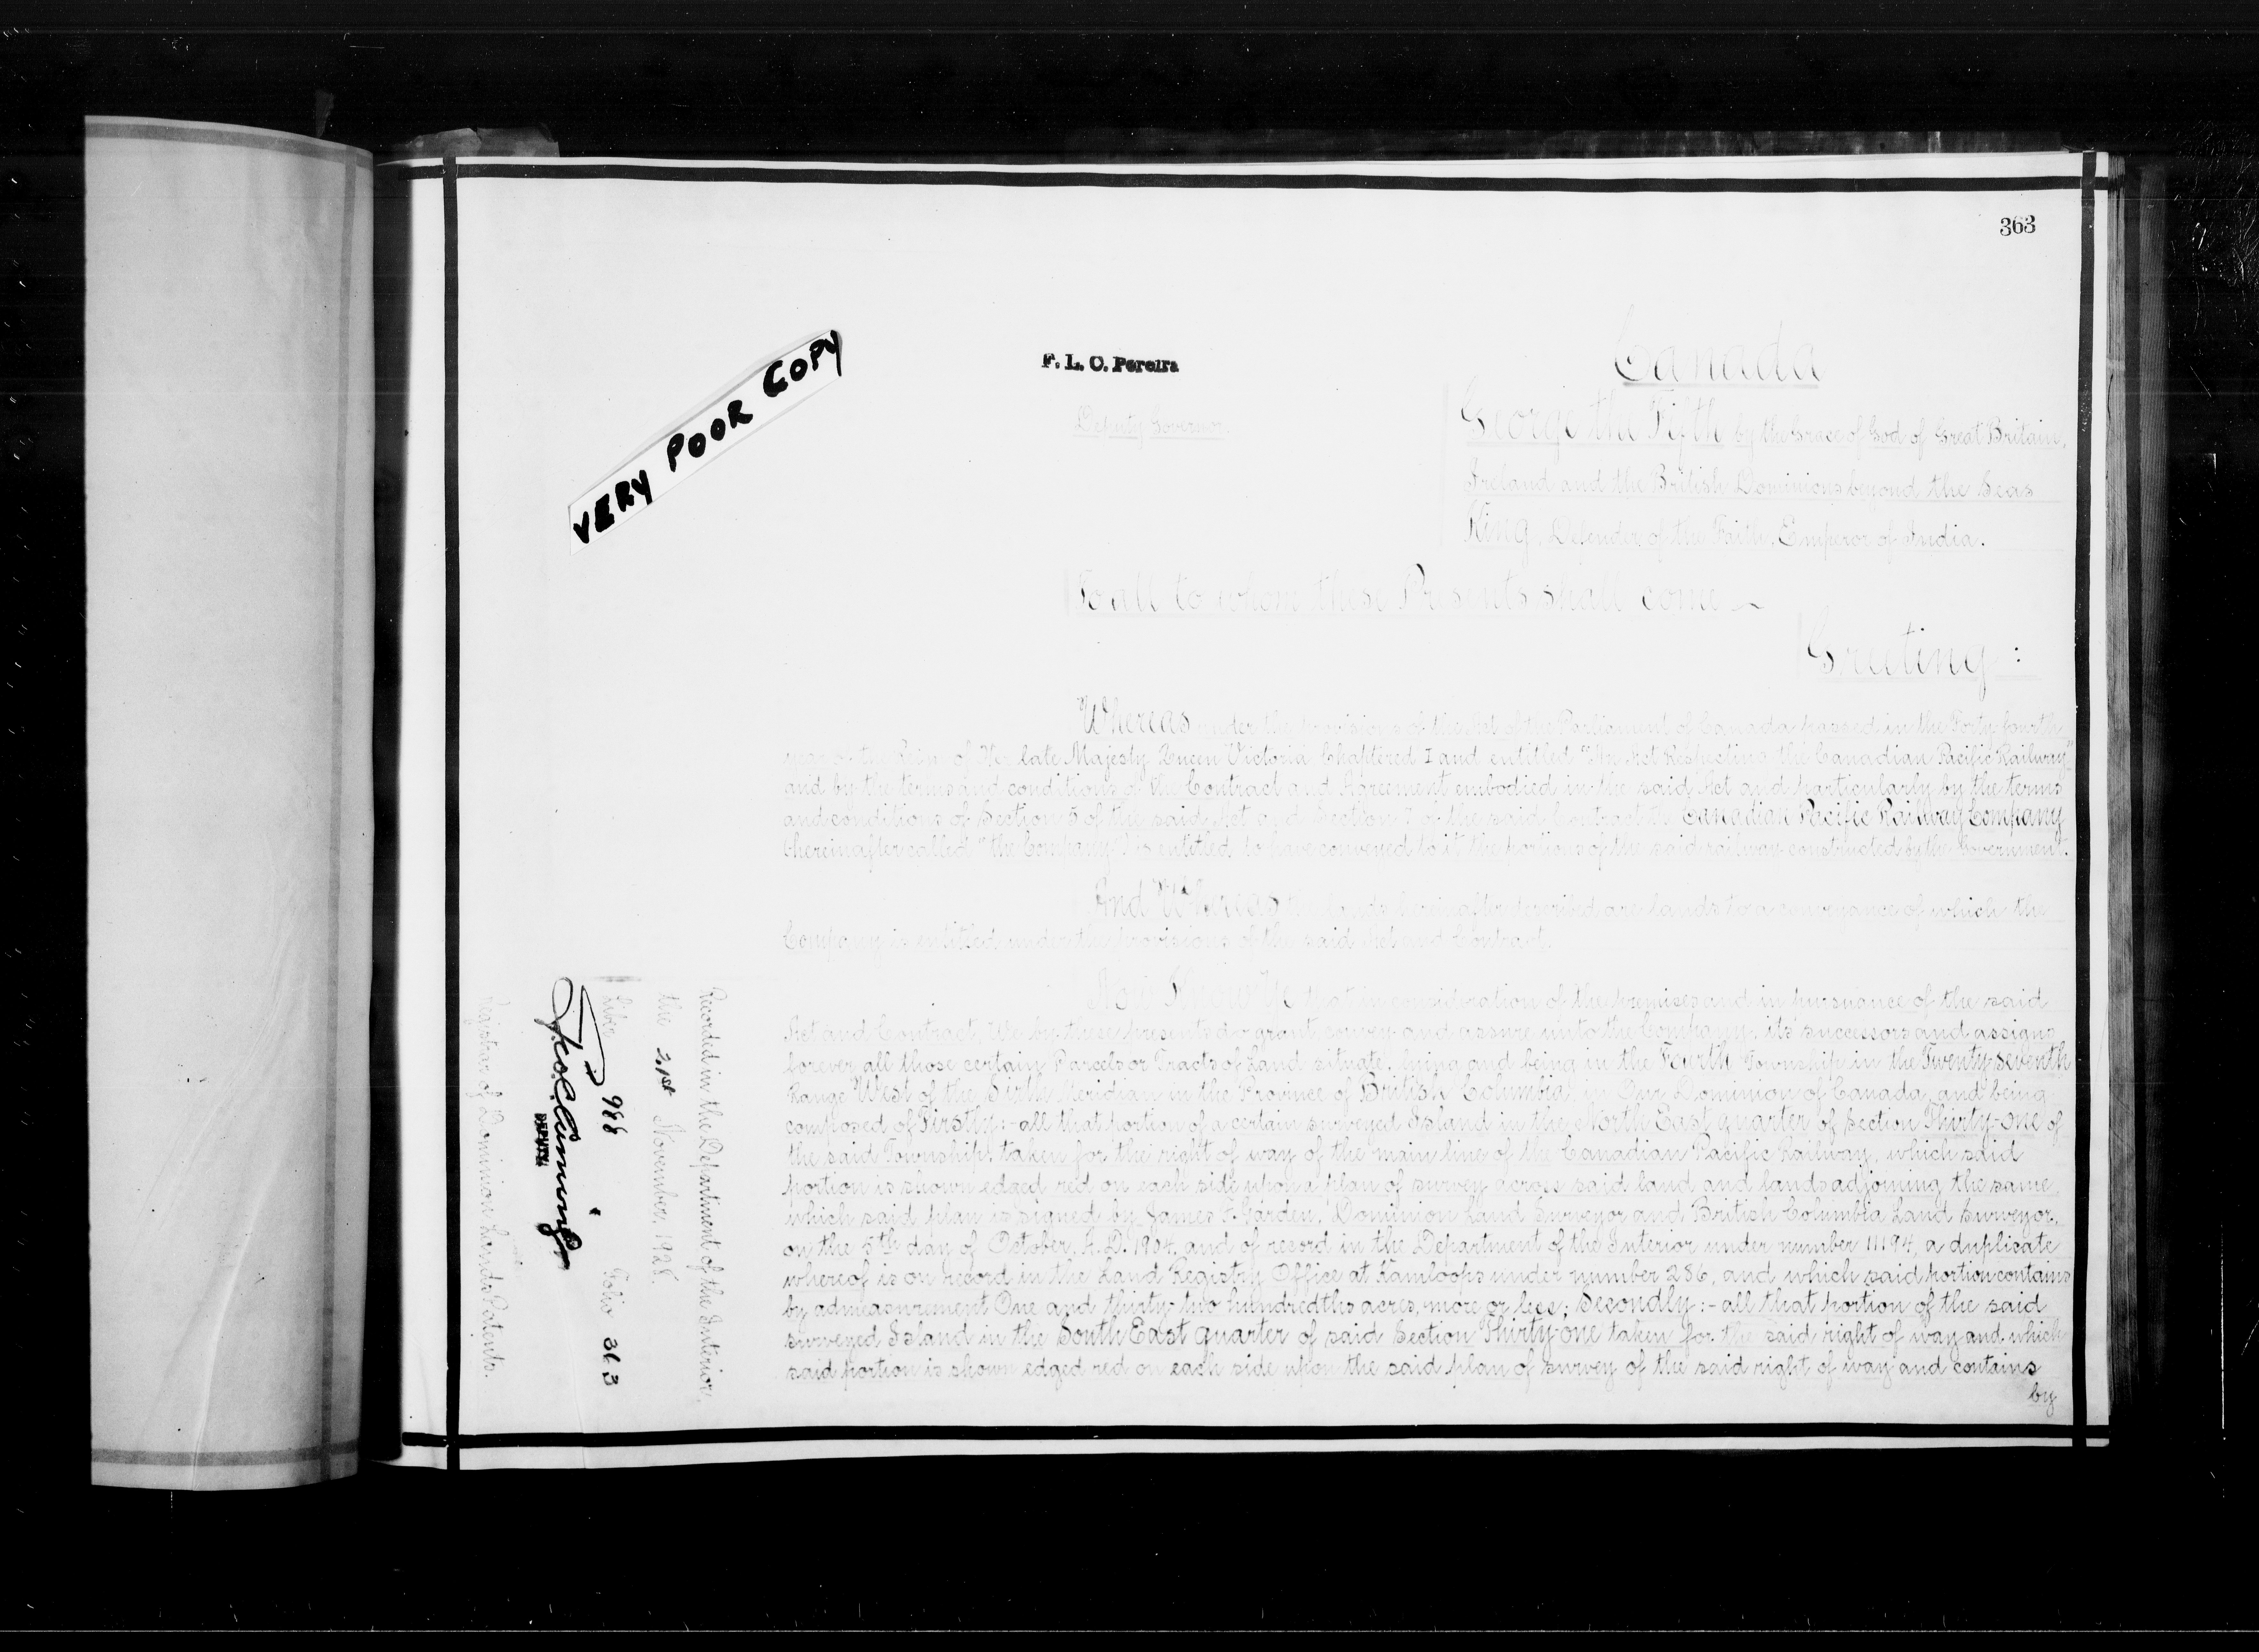 363
VERY POOR COPY
F. L. C. Pereira
Deputy Governor.
Canada
George the Fifth by the Grace of God of Great Britain,
Ireland and the British Dominions beyond the Seas
King, Defender of the Faith, Emperor of India.
To all to whom these Presents shall come ~
Greeting :
Whereas under the provisions of the Act of the Parliament of Canada passed in the Forty-fourth
year of the Reign of Her late Majesty Queen Victoria Chaptered I and entitled "An Act Respecting the Canadian Pacific Railway"
and by the terms and conditions of the Contract and Agreement embodied in the said Act and particularly by the terms
and conditions of Section 5 of the said Act and Section 7 of the said Contract the Canadian Pacific Railway Company
(hereinafter called "the Company") is entitled to have conveyed to it the portions of the said railway constructed by the Government.
And Whereas the lands hereinafter described are lands to a conveyance of which the
Company is entitled under the provisions of the said Act and Contract.
Now Know Ye that in consideration of the premises and in pursuance of the said
Act and Contract, We by these Presents do grant, convey and assure unto the Company, its successors and assigns
forever all those certain Parcels or Tracts of Land situate, lying and being in the Fourth Township in the Twenty-seventh
Range West of the Sixth Meridian in the Province of British Columbia in Our Dominion of Canada, and being
composed of Firstly:- all that portion of a certain surveyed Island in the North East quarter of Section Thirty-one of
the said Township, taken for the right of way of the main line of the Canadian Pacific Railway, which said
portion is shown edged red on each side upon a plan of survey across said land and lands adjoining the same,
which said plan is signed by James F. Garden, Dominion Land Surveyor and British Columbia Land Surveyor,
on the 5th day of October, A.D. 1904, and of record in the Department of the Interior under number 11194, a duplicate
whereof is on record in the Land Registry Office at Kamloops under number 286, and which said portion contains
by admeasurement One and thirty-two hundredths acres, more or less; Secondly:- all that portion of the said
surveyed Island in the South East quarter of said Section Thirty-one taken for the said right of way and which
said portion is shown edged red on each side upon the said plan of survey of the said right of way and contains
by
Recorded in the Department of the Interior,
the 21st November, 1928.
Liber 988 Folio 363
DEPUTY
Registrar of Dominion Lands Patents.